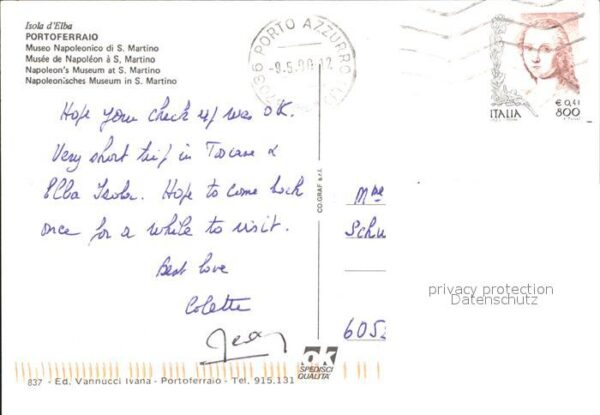 Isola d'Elba
PORTOFERRAIO
Museo Napoleonico di S. Martino
Musée de Napoléon à S, Martino
Napoleon's Museum at S. Martino
Napoleonisches Museum in S. Martino
PORTO AZZURRO
ITALIA
€ 0,41
800
Hope your check up was OK.
Very short trip in Toscane &
Elba Isola. Hope to come back
once for a while to visit.
Best love
Colette
Jean
CO.GRAF s.r.l.
Mme
Schu
605
privacy protection
Datenschutz
ok
SPEDISCI
QUALITA'
837 - Ed. Vannucci Ivana - Portoferraio - Tel. 915.131